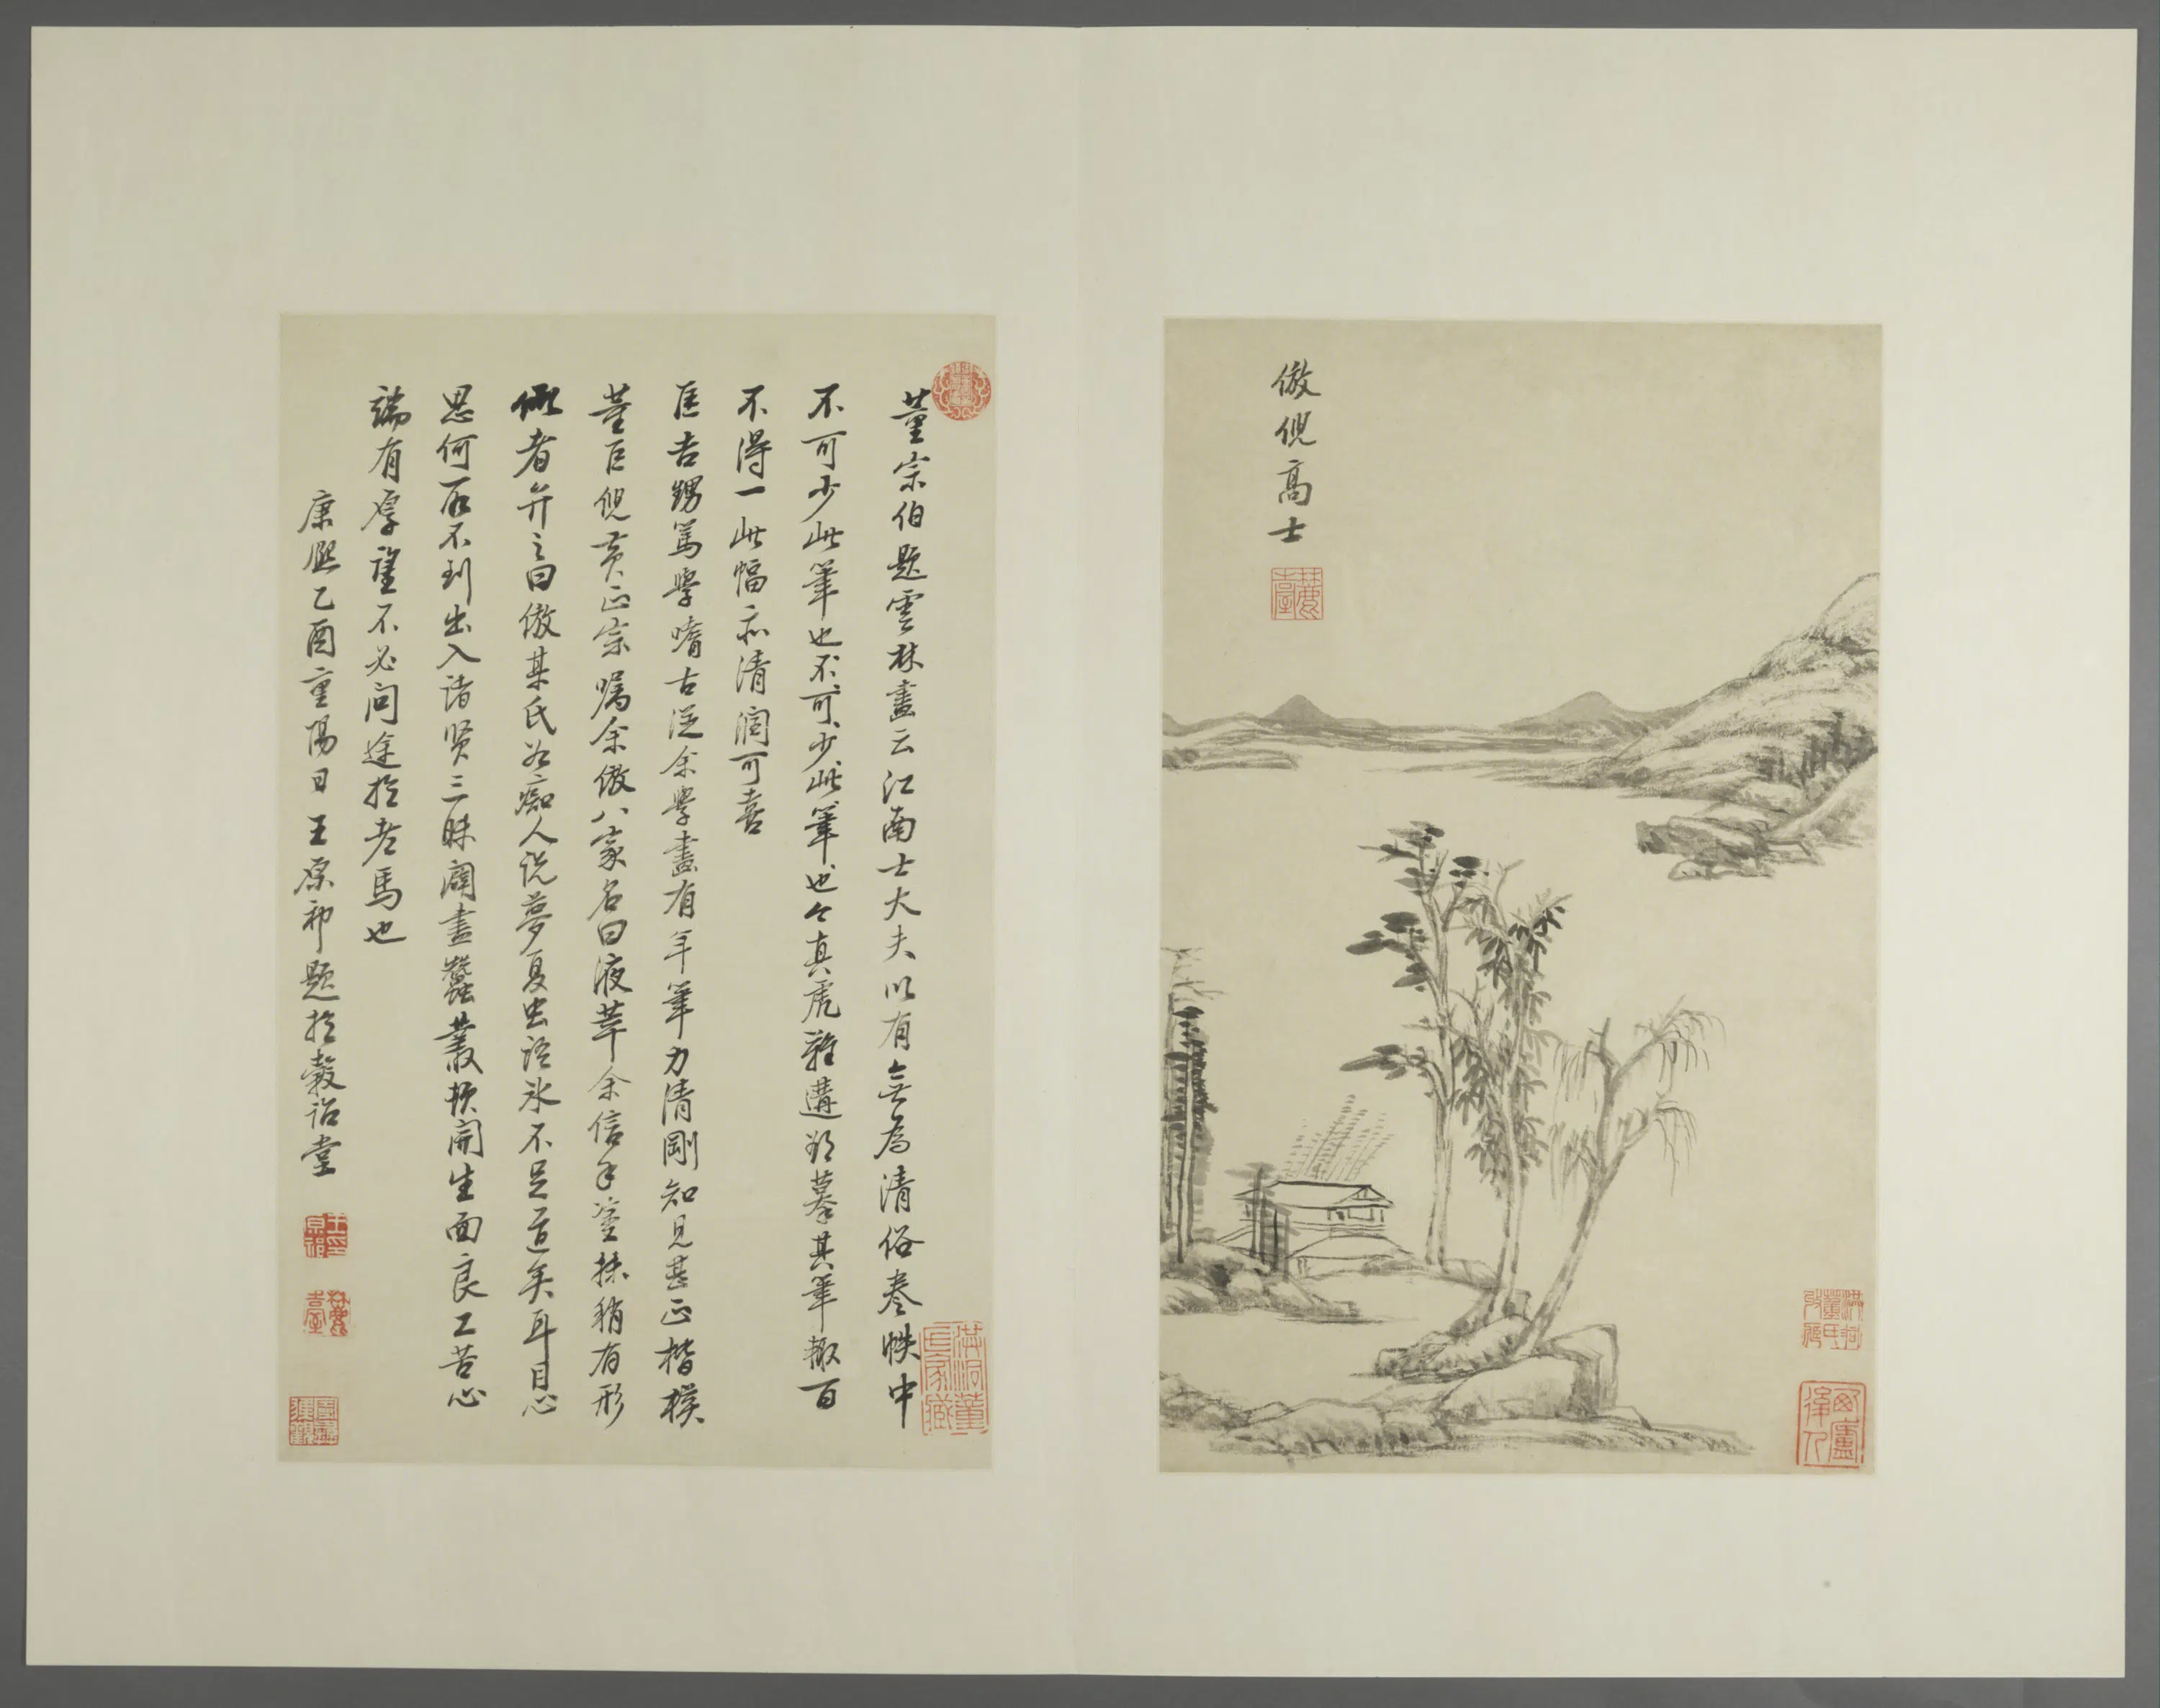 倣倪高士
董宗伯題雲林畫云江南士大夫以有無為清俗卷帙中
不可少此筆也不可少此筆也今真虎難遘欲摹其筆輒百
不得一此幅亦清潤可喜
匡吉甥篤學嗜古從余學畫有年筆力清剛知見甚正楷模
董巨倪黃正宗屬余倣八家名曰液萃余信手塗抹稍有形
似者弁之曰倣某氏為癡人說夢夏虫語氷不足道矣耳目心
思何所不到出入諸賢三昧闢盡蠶叢頓開生面良工苦心
端有厚望不必問途於老馬也
康熙乙酉重陽日王原祁題於穀詒堂
麓臺
王原祁印
麓臺